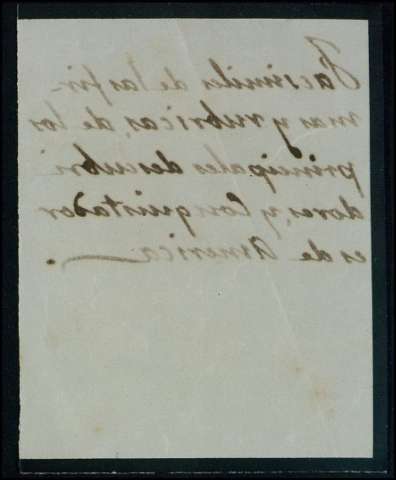 Facsimiles de las fir-
mas y rubricas, de los
principales descubri
dores, y Conquistador
es de America.